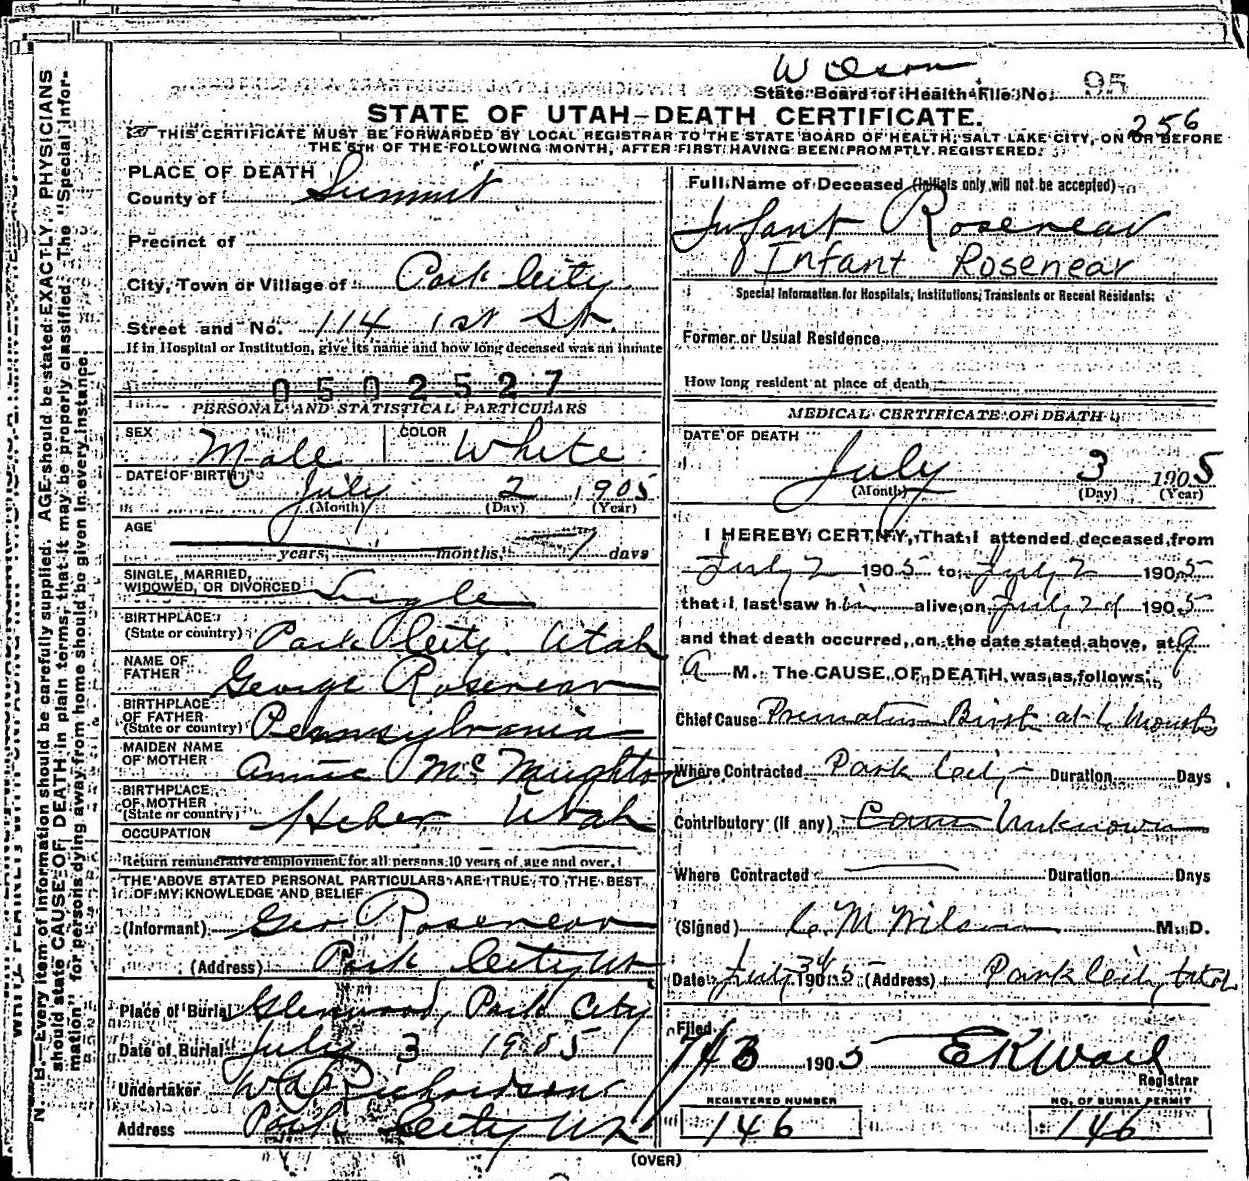 Wilson
State Board of Health File No. 95
STATE OF UTAH—DEATH CERTIFICATE.
256
THIS CERTIFICATE MUST BE FORWARDED BY LOCAL REGISTRAR TO THE STATE BOARD OF HEALTH, SALT LAKE CITY, ON OR BEFORE
THE 5TH OF THE FOLLOWING MONTH, AFTER FIRST HAVING BEEN PROMPTLY REGISTERED.
N. B.—Every item of information should be carefully supplied. AGE should be stated EXACTLY. PHYSICIANS
should state CAUSE OF DEATH in plain terms, that it may be properly classified. The "Special Infor-
mation" for persons dying away from home should be given in every instance.
PLACE OF DEATH
County of Summit
Precinct of
City, Town or Village of Park City
Street and No. 114 1st St.
If in Hospital or Institution, give its name and how long deceased was an inmate
0502527
PERSONAL AND STATISTICAL PARTICULARS
SEX Male COLOR White
DATE OF BIRTH July 2 1905
(Month) (Day) (Year)
AGE
years, months, 1 days
SINGLE, MARRIED,
WIDOWED, OR DIVORCED Single
BIRTHPLACE
(State or country) Park City, Utah
NAME OF
FATHER George Rosenear
BIRTHPLACE
OF FATHER
(State or country) Pennsylvania
MAIDEN NAME
OF MOTHER Annie McNaughton
BIRTHPLACE
OF MOTHER
(State or country) Heber Utah
OCCUPATION
Return remunerative employment for all persons 10 years of age and over.
THE ABOVE STATED PERSONAL PARTICULARS ARE TRUE TO THE BEST
OF MY KNOWLEDGE AND BELIEF
(Informant) Geo Rosenear
(Address) Park City Ut
Place of Burial Glenwood, Park City
Date of Burial July 3 1905
Undertaker W A Richardson
Address Park City Ut
Full Name of Deceased (Initials only will not be accepted)
Infant Rosenear
Infant Rosenear
Special Information for Hospitals, Institutions, Transients or Recent Residents:
Former or Usual Residence
How long resident at place of death
MEDICAL CERTIFICATE OF DEATH
DATE OF DEATH
July 3 1905
(Month) (Day) (Year)
I HEREBY CERTIFY, That I attended deceased from
July 2 1905 to July 2 1905
that I last saw him alive on July 2d 1905
and that death occurred, on the date stated above, at 9
A M. The CAUSE OF DEATH was as follows:
Chief Cause Premature Birth at 6 Months
Where Contracted Park City Duration Days
Contributory (if any) Cause Unknown
Where Contracted Duration Days
(Signed) C M Wilson M. D.
Date July 3d 1905 (Address) Park City Utah
Filed
7/3 1905 E K Wail
Registrar
REGISTERED NUMBER
146
NO. OF BURIAL PERMIT
146
(OVER)